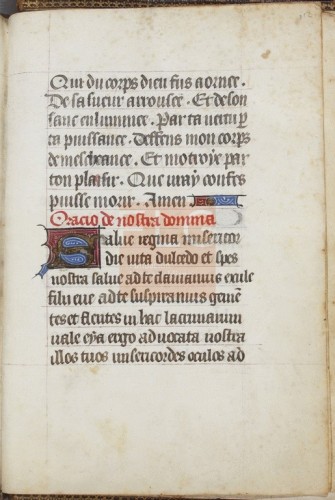 Qui du corps dieu fus aornee.
De sa sueur arrousee. Et de son
sanc enluminee. Par ta vertu par
ta puissance. Deffens mon corps
de mescheance. Et motroye par
ton plaisir. Que vray confes
puisse morir. Amen
Oracio de nostra domina
Salue regina misericor
die vita dulcedo et spes
nostra salue ad te clamamus exile
filii eue ad te suspiramus gemen
tes et flentes in hac lacrimarum
uale eya ergo aduocata nostra
illos tuos misericordes oculos ad